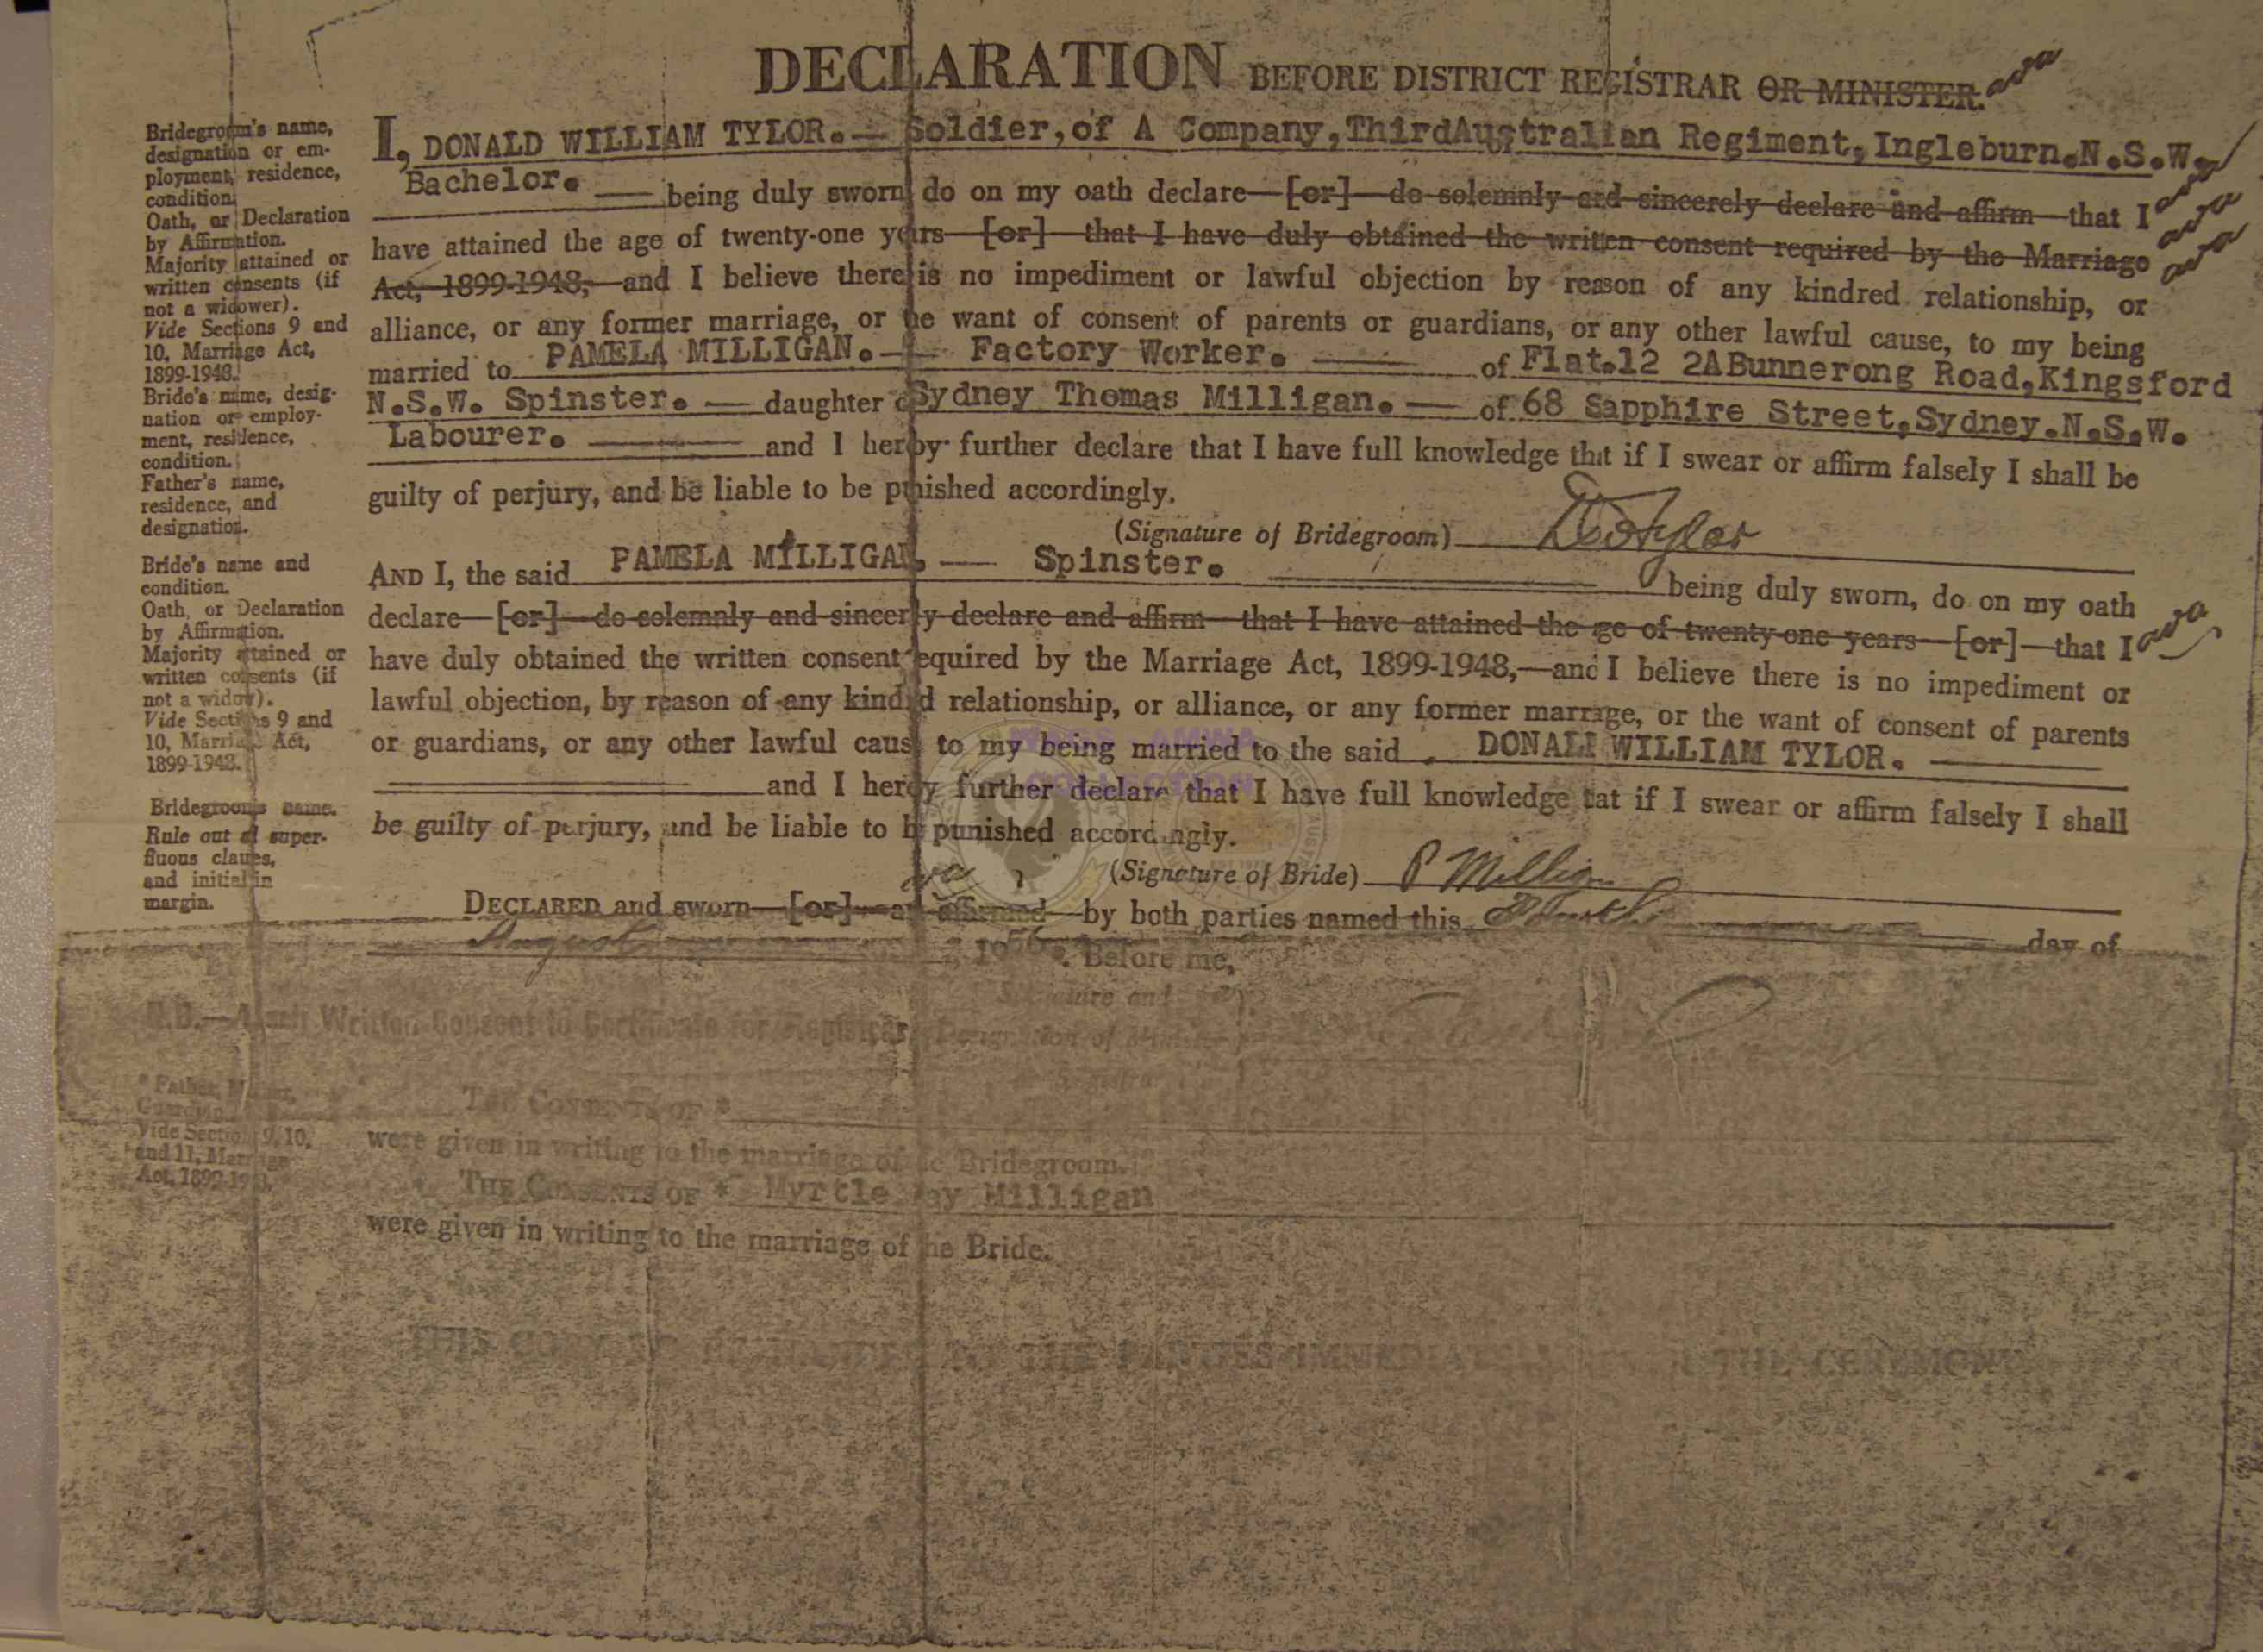 DECLARATION BEFORE DISTRICT REGISTRAR OR MINISTER.
Bridegroom's name,
designation or em-
ployment, residence,
condition.
Oath, or Declaration
by Affirmation.
Majority attained or
written consents (if
not a widower).
Vide Sections 9 and
10, Marriage Act,
1899-1948.
Bride's name, desig-
nation or employ-
ment, residence,
condition.
Father's name,
residence, and
designation.
I, DONALD WILLIAM TYLOR. — Soldier, of A Company, ThirdAustralian Regiment, Ingleburn.N.S.W.
Bachelor. — being duly sworn do on my oath declare—[or]—do solemnly and sincerely declare and affirm—that I
have attained the age of twenty-one years—[or]—that I have duly obtained the written consent required by the Marriage
Act, 1899-1948,—and I believe there is no impediment or lawful objection by reason of any kindred relationship, or
alliance, or any former marriage, or he want of consent of parents or guardians, or any other lawful cause, to my being
married to PAMELA MILLIGAN. — Factory Worker. — of Flat.12 2ABunnerong Road, Kingsford
N.S.W. Spinster. — daughter o Sydney Thomas Milligan. — of 68 Sapphire Street, Sydney.N.S.W.
Labourer. — and I herby further declare that I have full knowledge tht if I swear or affirm falsely I shall be
guilty of perjury, and be liable to be pnished accordingly.
(Signature of Bridegroom) DWTylor
Bride's name and
condition.
Oath, or Declaration
by Affirmation.
Majority attained or
written consents (if
not a widow).
Vide Sections 9 and
10, Marriage Act,
1899-1948.
Bridegroom's name.
Rule out all super-
fluous clauses,
and initial in
margin.
AND I, the said PAMELA MILLIGAN, — Spinster. — being duly sworn, do on my oath
declare—[or]—do solemnly and sincerly declare and affirm—that I have attained the ge of twenty-one years—[or]—that I
have duly obtained the written consent equired by the Marriage Act, 1899-1948,—and I believe there is no impediment or
lawful objection, by reason of any kindrd relationship, or alliance, or any former marrige, or the want of consent of parents
or guardians, or any other lawful caus to my being married to the said DONALD WILLIAM TYLOR. —
and I herby further declare that I have full knowledge tat if I swear or affirm falsely I shall
be guilty of perjury, and be liable to b punished accordingly.
COLLECTION
(Signature of Bride) P Milligan
DECLARED and sworn—[or]—and affirmed—by both parties named this day of
August 1956. Before me,
N.B.—Attach Written Consent to Certificate for Registrar
Signature and
Designation of Minister
* Father, Mother,
Guardian
Vide Sections 9, 10,
and 11, Marriage
Act, 1899-1948.
THE CONSENTS OF *
were given in writing to the marriage of he Bridegroom.
THE CONSENTS OF * Myrtle May Milligan
were given in writing to the marriage of he Bride.
THIS COPY TO BE HANDED TO THE PARTIES IMMEDIATELY THE CEREMONY